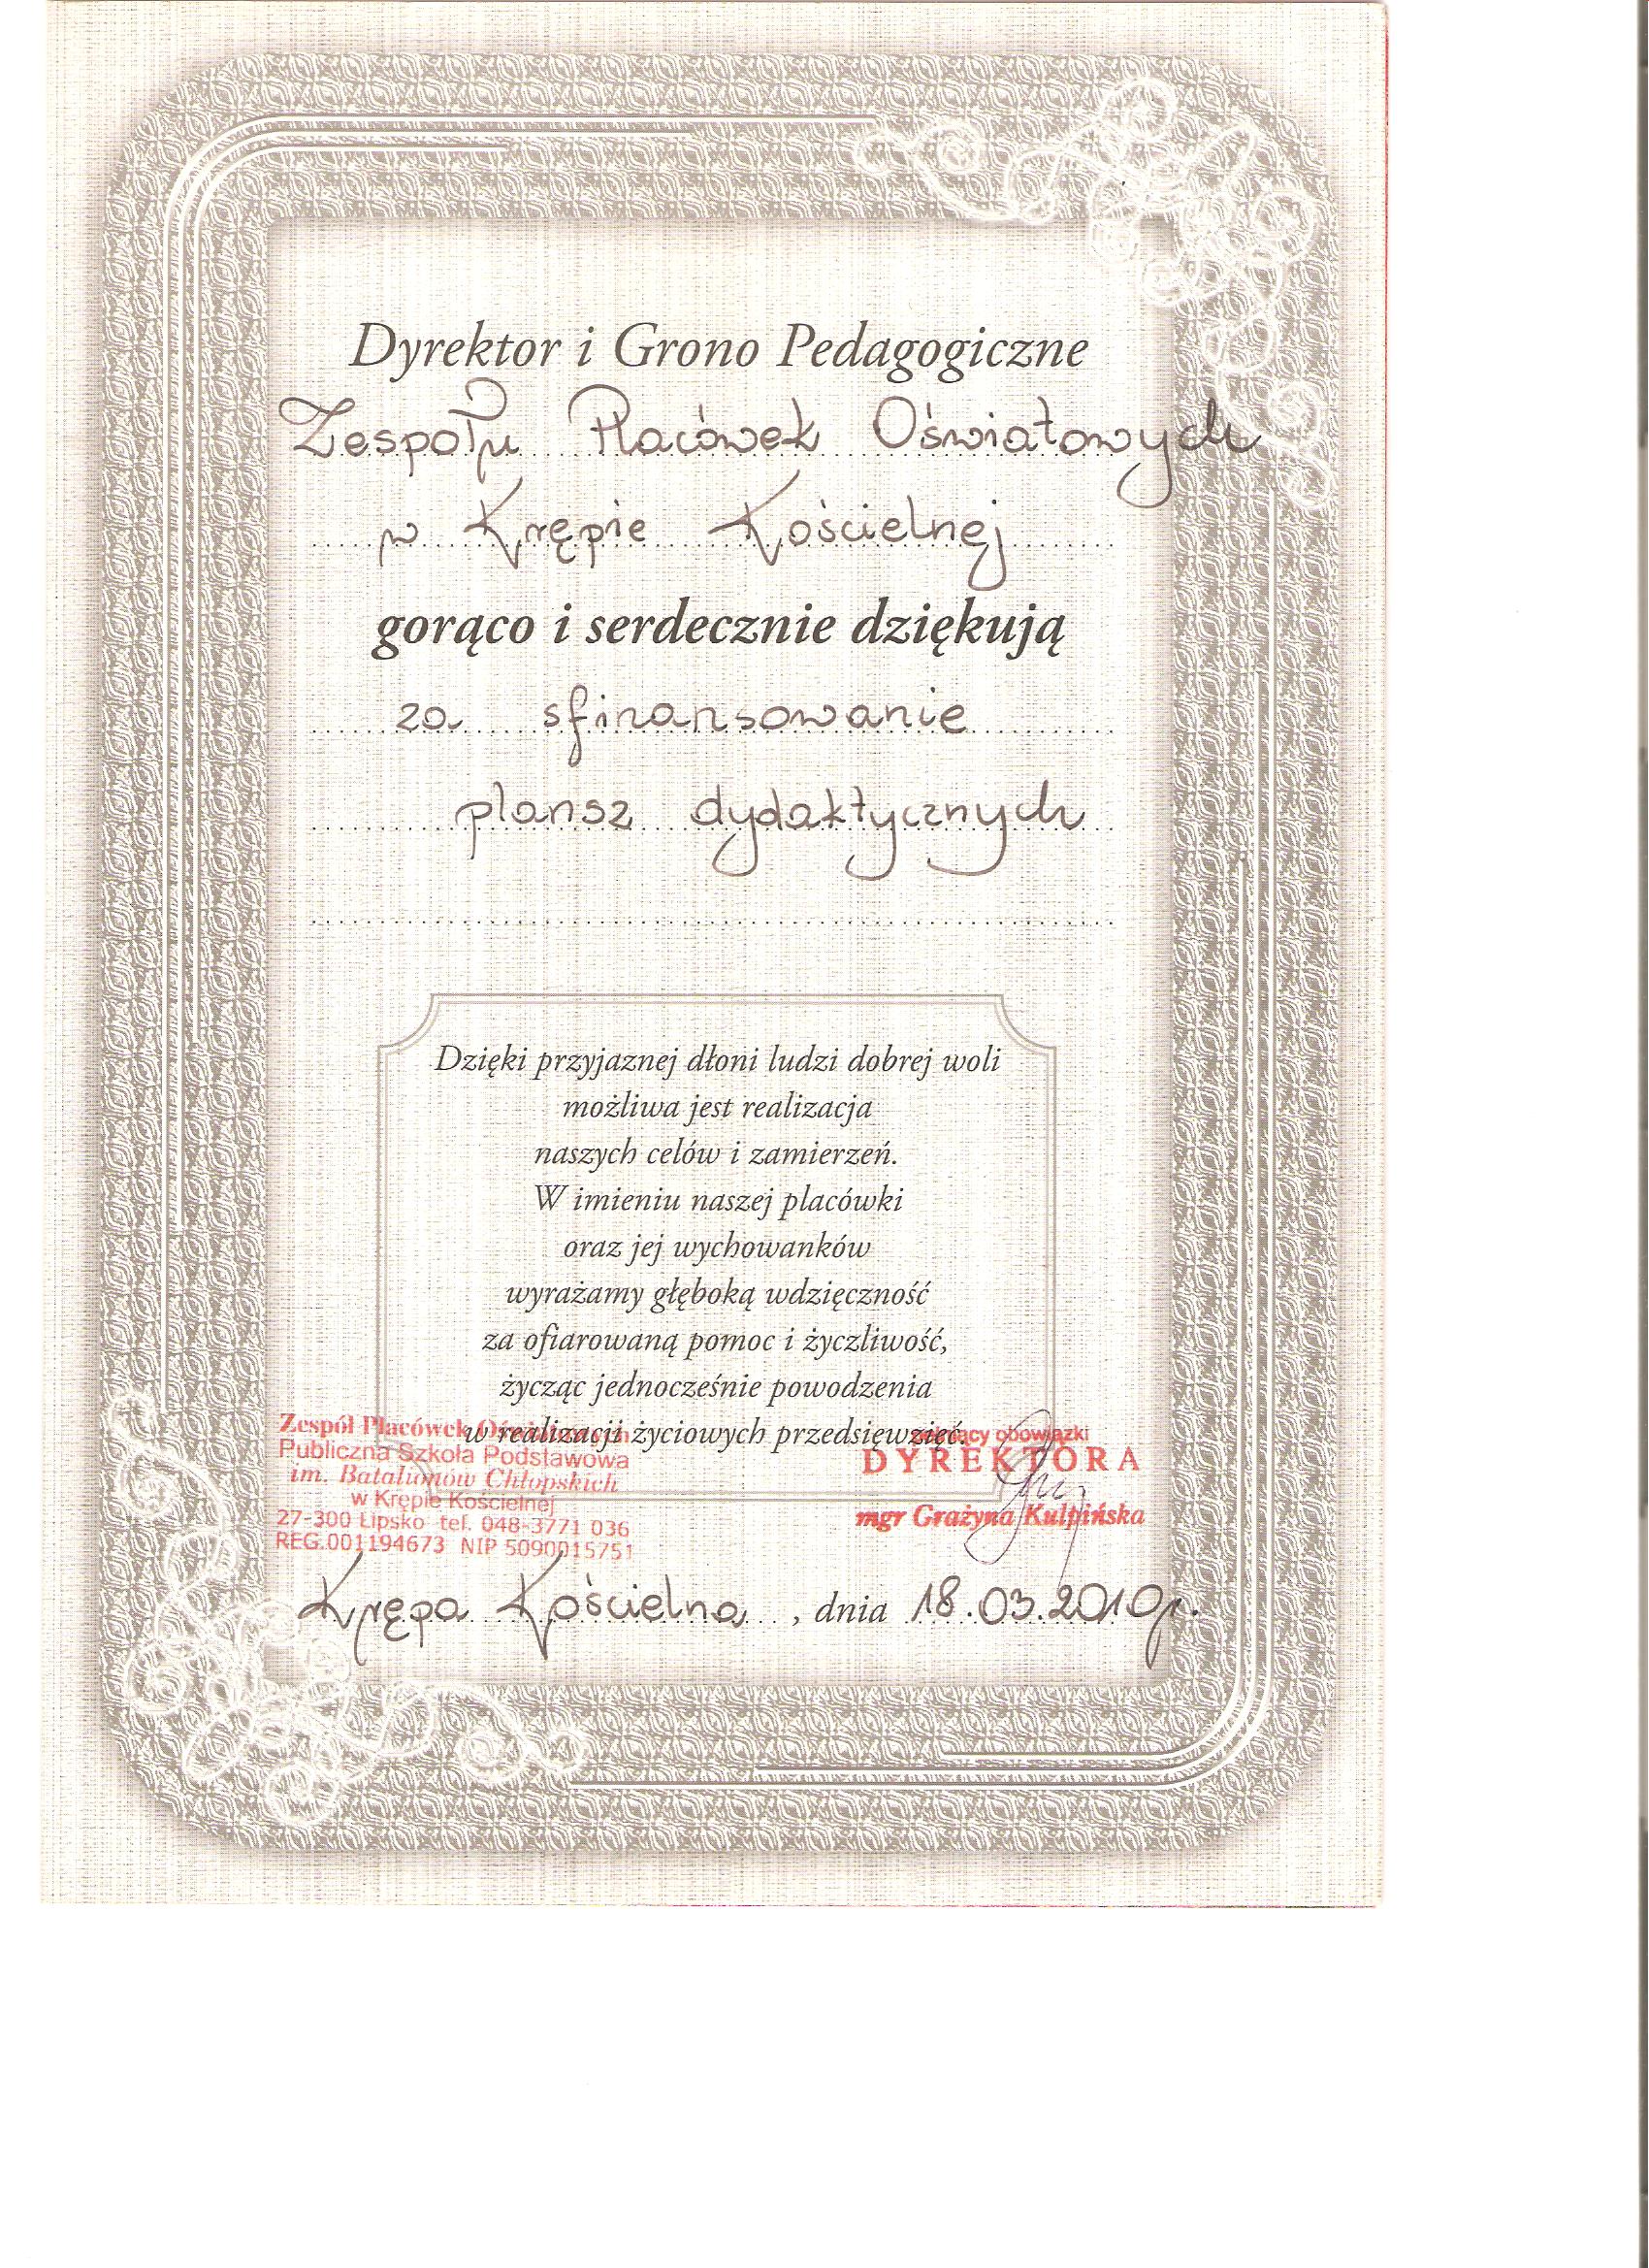 Dyrektor i Grono Pedagogiczne
Zespołu Placówek Oświatowych
w Krępie Kościelnej
gorąco i serdecznie dziękują
za sfinansowanie
plansz dydaktycznych
Dzięki przyjaznej dłoni ludzi dobrej woli
możliwa jest realizacja
naszych celów i zamierzeń.
W imieniu naszej placówki
oraz jej wychowanków
wyrażamy głęboką wdzięczność
za ofiarowaną pomoc i życzliwość,
życząc jednocześnie powodzenia
w realizacji życiowych przedsięwzięć.
Zespół Placówek Oświatowych
Publiczna Szkoła Podstawowa
im. Batalionów Chłopskich
w Krępie Kościelnej
27-300 Lipsko tel. 048-3771 036
REG.001194673 NIP 5090015751
obowiązki
DYREKTORA
mgr Grażyna Kulpińska
Krępa Kościelna, dnia 18.03.2010r.